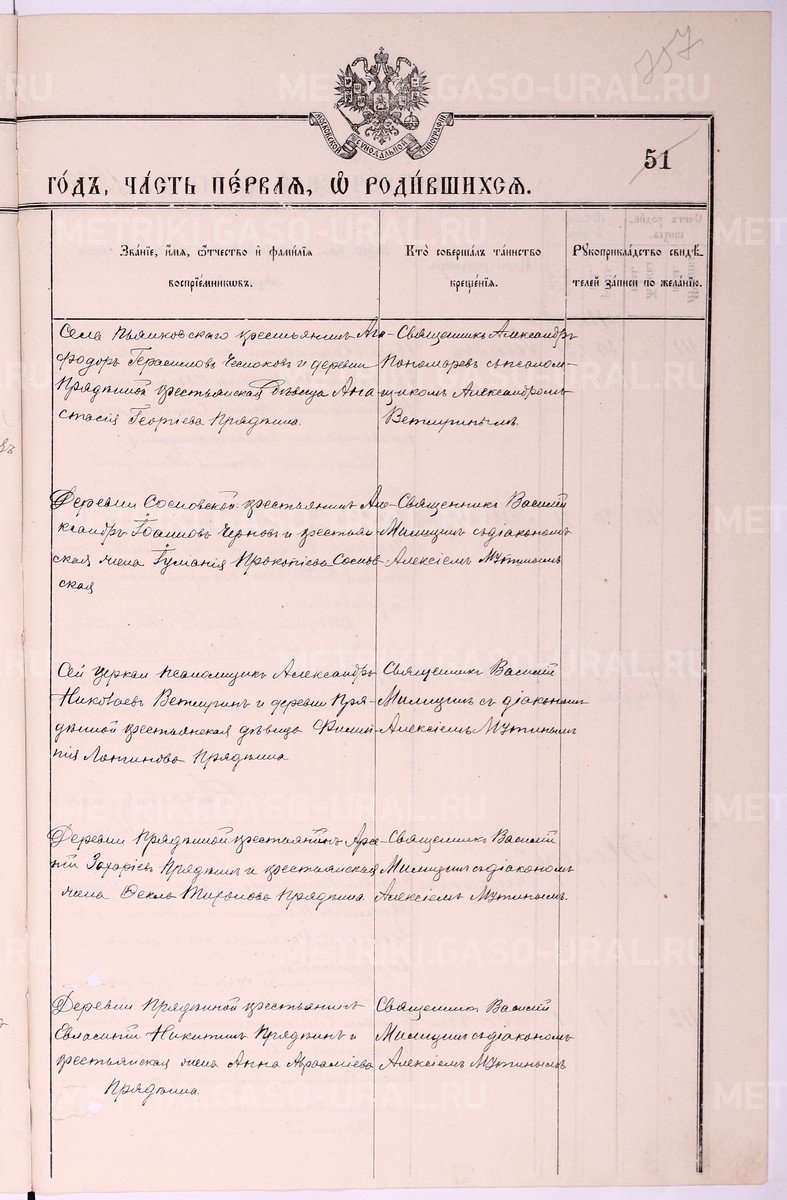 757
МОСКОВСКОЙ СѴНОДАЛЬНОЙ ТИПОГРАФІИ
51
ГОДЪ, ЧАСТЬ ПЕРВАЯ, Ѡ РОДИВШИХСЯ.
Званіе, имя, отчество и фамилія воспріемниковъ.
Кто совершалъ таинство крещенія.
Рукоприкладство свидѣтелей записи по желанію.
крестьянинъ Ага
фодоръ Герасимовъ и деревни
Прядкиной крестьянская дѣвица Ана
стасія Георгіева Прядкина
Священникъ Александръ
Пономаревъ съ псалом-
щикомъ Александромъ
Ветлугинымъ
Деревни Сосновской крестьянинъ Але-
ксандръ Іоанновъ Черновъ и крестьян
ская жена Іуліанія Прокопіева Соснов
ская
Священникъ Василій
Милицинъ съ діакономъ
Алексіемъ Мутинымъ
Сей церкви псаломщикъ Александръ
Николаевъ Ветлугинъ и деревни Пря-
дкиной крестьянская дѣвица
Прядкина
Священникъ Василій
Милицинъ съ діакономъ
Алексіемъ Мутинымъ
Деревни Прядкиной крестьянинъ Арсе
ній Захаріевъ Прядкинъ и крестьянская
жена Ѳекла Тихонова Прядкина
Священникъ Василій
Милицинъ съ діакономъ
Алексіемъ Мутинымъ.
Деревни Прядкиной крестьянинъ
Евлампій Никитинъ Прядкинъ и
крестьянская жена Анна Аврааміева
Прядкина.
Священникъ Василій
Милицинъ съ діакономъ
Алексіемъ Мутинымъ
METRIKI.GASO-URAL.RU